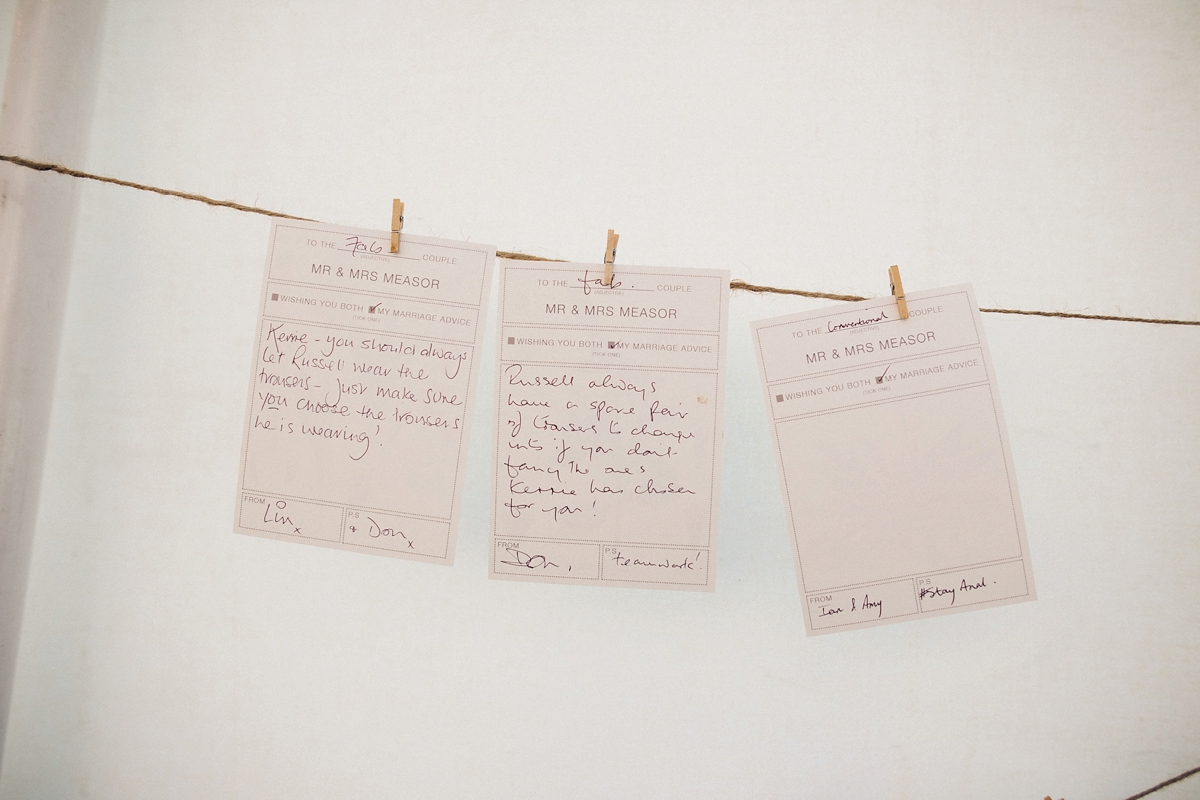 TO THE Fab COUPLE
(ADJECTIVE)
MR & MRS MEASOR
WISHING YOU BOTH MY MARRIAGE ADVICE
(TICK ONE)
Kerrie - you should always
let Russell wear the
trousers - just make sure
you choose the trousers
he is wearing!
FROM
Lin x
P.S
& Don x
TO THE fab. COUPLE
(ADJECTIVE)
MR & MRS MEASOR
WISHING YOU BOTH MY MARRIAGE ADVICE
(TICK ONE)
Russell always
have a spare pair
of trousers to change
into if you don't
fancy the ones
Kerrie has chosen
for you!
FROM
Don,
P.S
teamwork!
TO THE Conventional COUPLE
(ADJECTIVE)
MR & MRS MEASOR
WISHING YOU BOTH MY MARRIAGE ADVICE
(TICK ONE)
FROM
Ian & Amy
P.S
#Stay Anal.